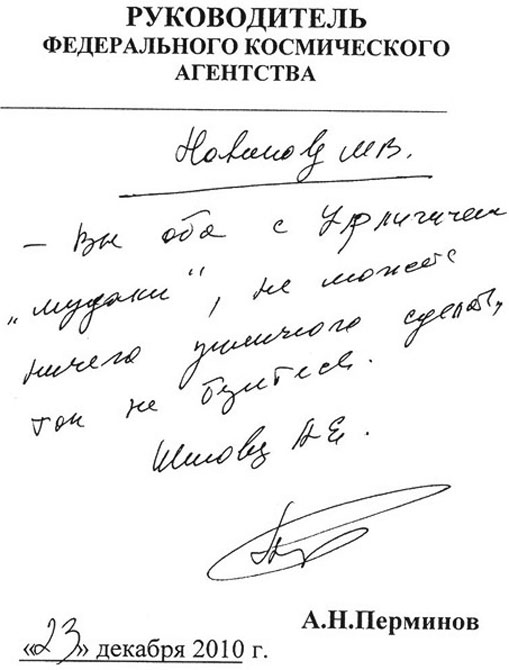 РУКОВОДИТЕЛЬ
ФЕДЕРАЛЬНОГО КОСМИЧЕСКОГО
АГЕНТСТВА
М.В.
– Вы оба с Урличичем
„мудаки“, не можете
ничего приличного сделать,
так не беситесь.
Шилову А.Е.
А.Н.Перминов
«23» декабря 2010 г.